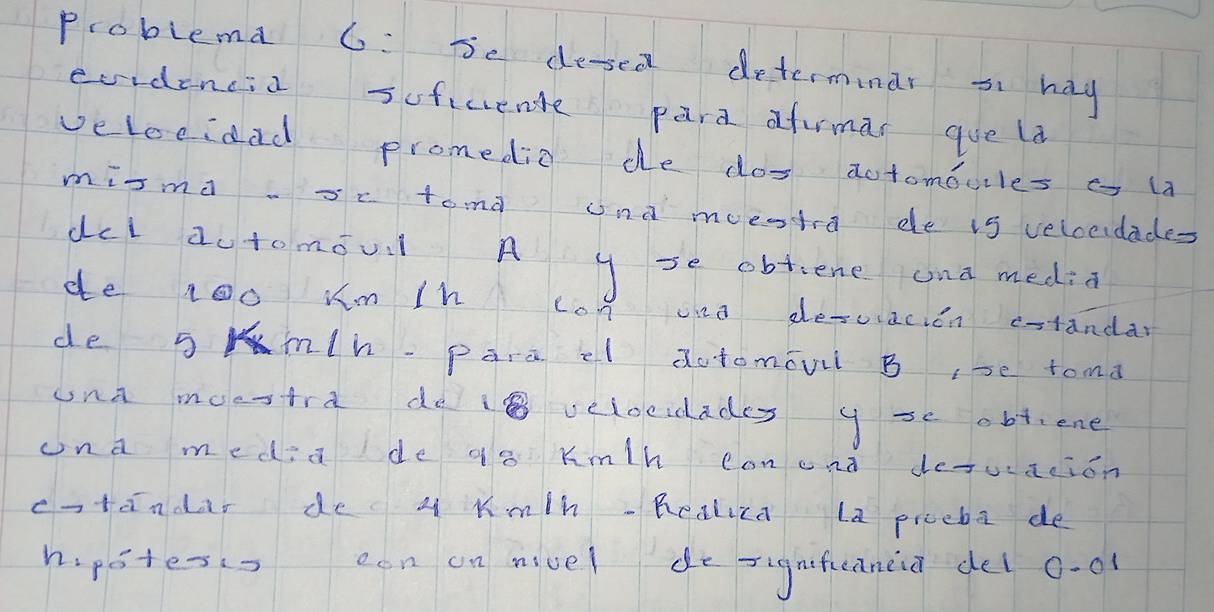 Problema 6: Se desea determinar si hay
evidencia suficiente para afirmar que la
velocidad promedio de dos automóviles es la
misma. Se toma una muestra de 15 velocidades
del automóvil A y se obtiene una media
de 100 Km/h con una desviación estándar
de 5 Km/h. para el automóvil B, se toma
una muestra de 18 velocidades y se obtiene
una media de 98 Km/h con una desviación
estándar de 4 Km/h. Realiza la prueba de
hipótesis con un nivel de significancia del 0.01